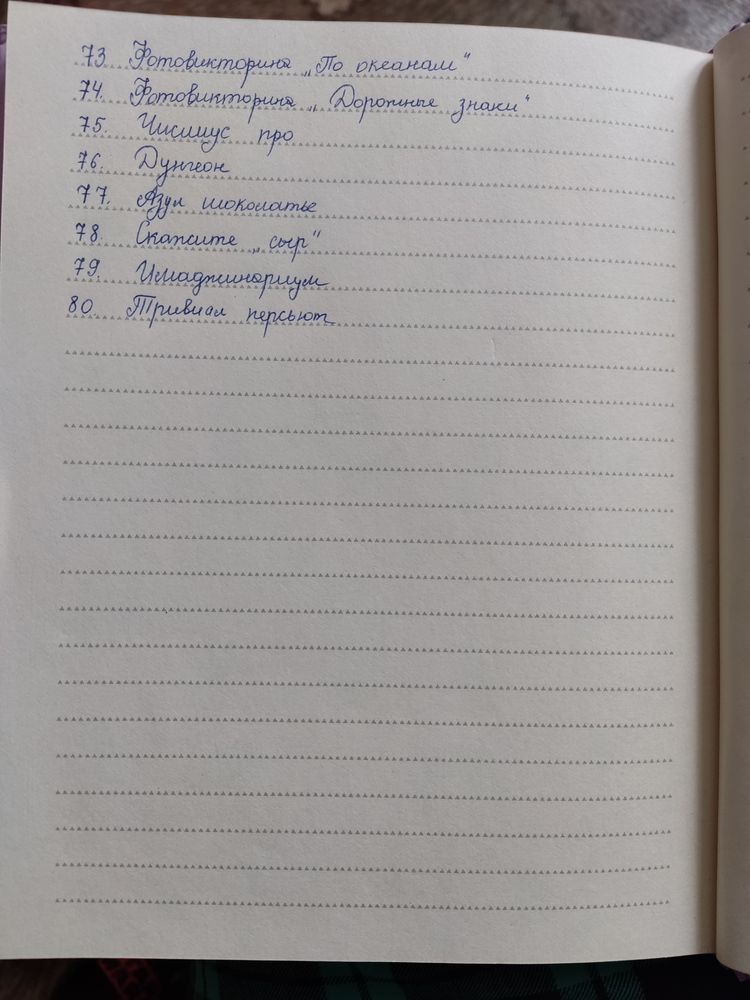 73. Фотовикторина „По океанам"
74. Фотовикторина „Дорожные знаки"
75. Чисимус про
76. Дунгеон
77. Азул шоколатье
78. Скажите „сыр"
79. Имаджинариум
80. Тривиал персьют